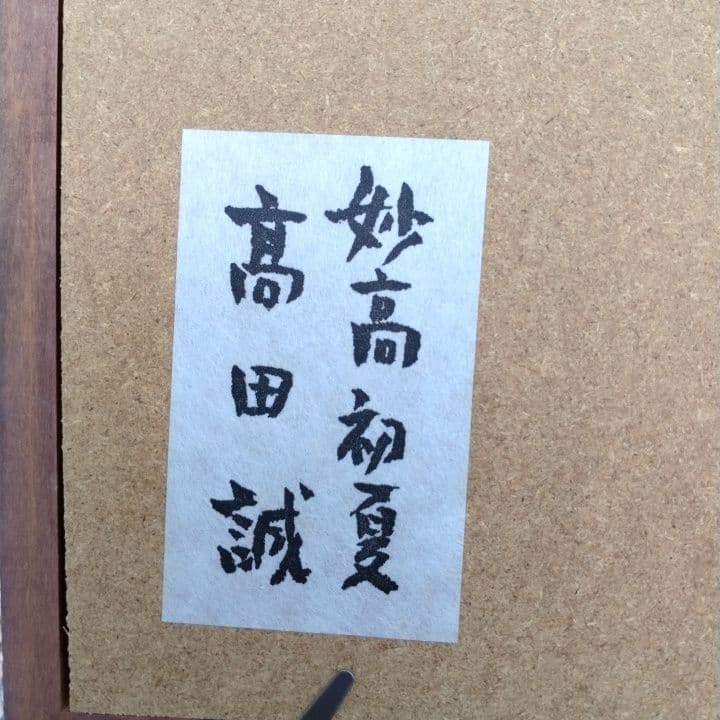 妙高初夏
髙田誠